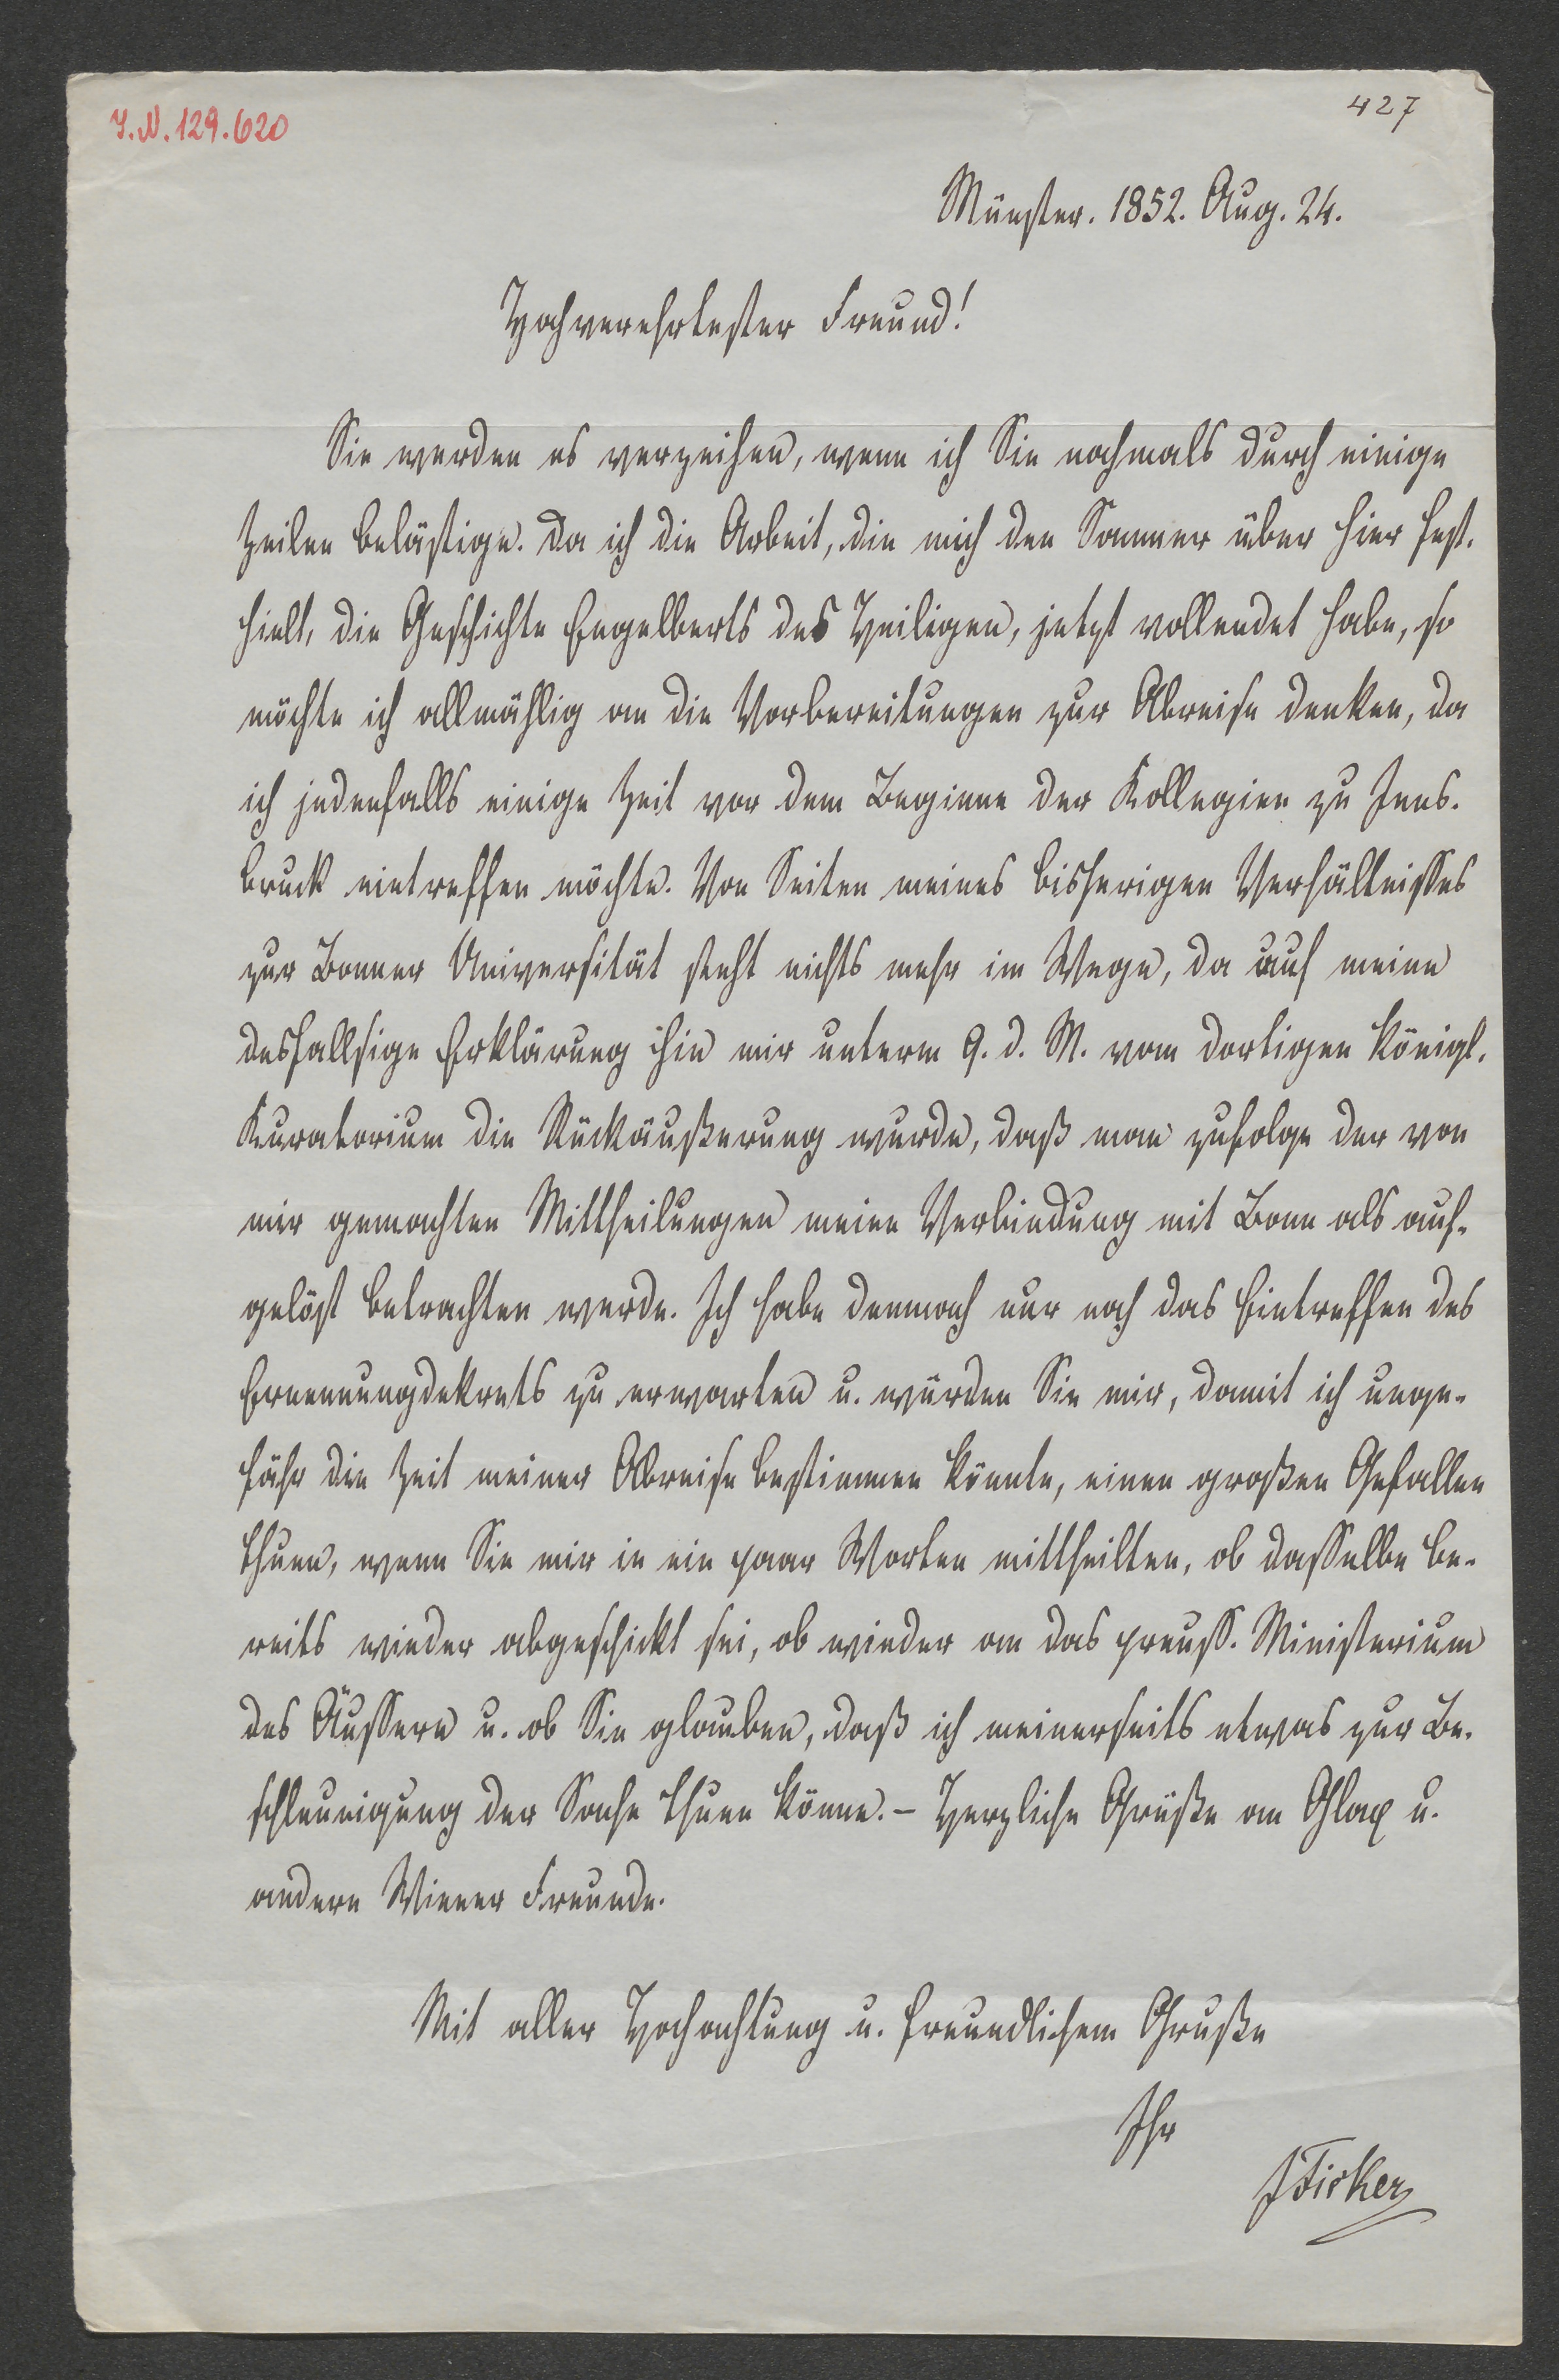 J.N. 129.620
427
Münster. 1852. Aug. 24.
Hochverehrtester Freund!
Sie werden es verzeihen, wenn ich Sie nochmals durch einige
Zeilen belästige. Da ich die Arbeit, die mich den Sommer über hier fest-
hielt, die Geschichte Engelberts des Heiligen, jetzt vollendet habe, so
möchte ich allmählig an die Vorbereitungen zur Abreise denken, da
ich jedenfalls einige Zeit vor dem Beginne der Kollegien zu Inns-
bruck eintreffen möchte. Von Seiten meines bisherigen Verhältnisses
zur Bonner Universität steht nichts mehr im Wege, da auf meine
desfallsige Erklärung hin mir unterm 9. d. M. vom dortigen königl.
Kuratorium die Rückäußerung wurde, daß man zufolge der von
mir gemachten Mittheilungen meine Verbindung mit Bonn als auf-
gelöst betrachten werde. Ich habe demnach nur noch das Eintreffen des
Ernennungdekrets zu erwarten u. würden Sie mir, damit ich unge-
fähr die Zeit meiner Abreise bestimmen könnte, einen großen Gefallen
thuen, wenn Sie mir in ein paar Worten mittheilten, ob dasselbe be-
reits wieder abgeschickt sei, ob wieder an das preuss. Ministerium
des Äussern u. ob Sie glauben, daß ich meinerseits etwas zur Be-
schleunigung der Sache thuen könne. - Herzliche Grüße an Glax u.
andere Wiener Freunde.
Mit aller Hochachtung u. freundlichem Gruße
Ihr
JFicker